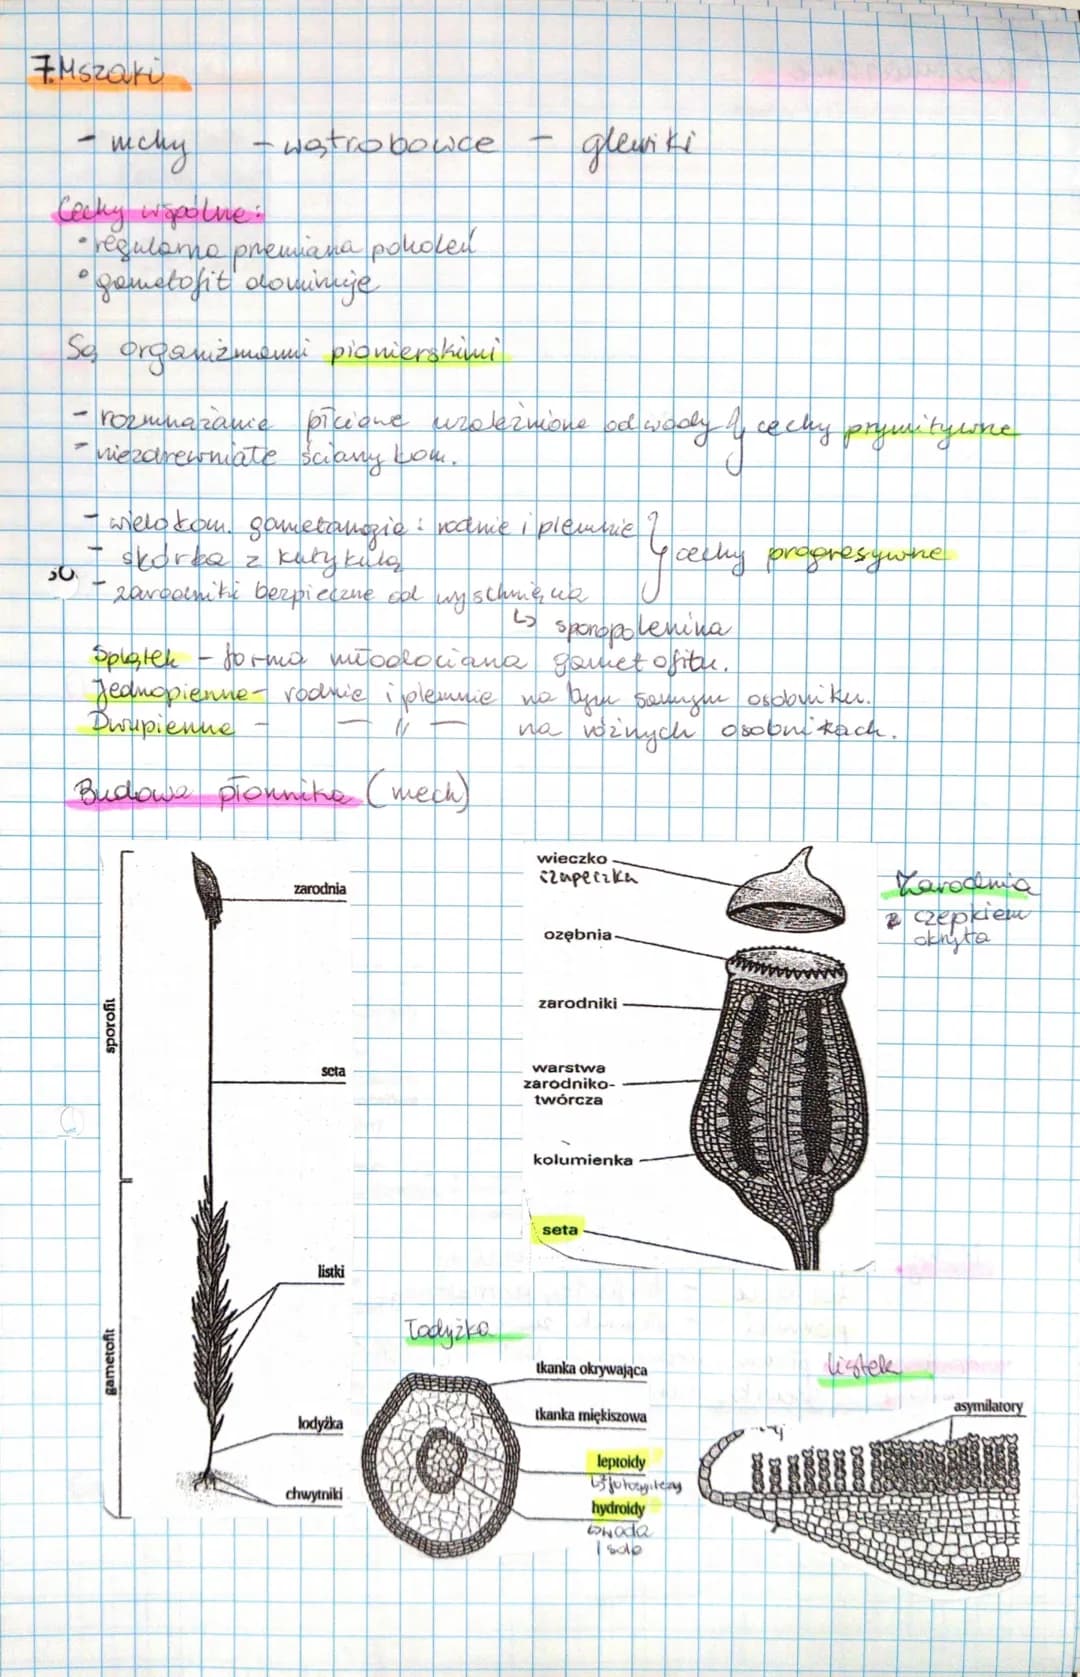 7. Mszaki
- mchy - wątrobowce - glewiki
Cechy wspólne:
• regularna przemiana pokoleń
• gametofit dominuje
Są organizmami pionierskimi
- rozmnażanie płciowe uzależnione od wody } cechy prymitywne
- niezdrewniałe ściany kom.
- wielokom. gametangia: rodnie i plemnie } cechy progresywne
- skórka z kutykulą
- zarodniki bezpieczne od wyschnięcia
↳ sporopolenina
Splątek - forma młodociana gametofitu.
Jednopienne - rodnie i plemnie na tym samym osobniku.
Dwupienne - — // — na różnych osobnikach.
Budowa płonnika (mech)
sporofit
zarodnia
seta
gametofit
listki
łodyżka
chwytniki
wieczko
czapeczka
ozębnia
zarodniki
warstwa
zarodniko-
twórcza
kolumienka
seta
Zarodnia
z czepkiem
okryta
Łodyżka
tkanka okrywająca
tkanka miękiszowa
leptoidy
hydroidy
↳ woda
i sole
listek
asymilatory